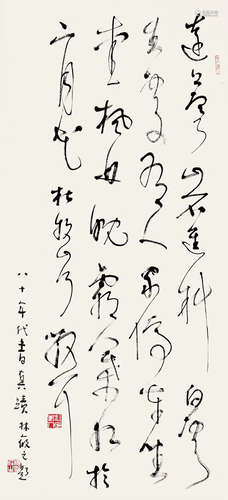 遠上寒山石逕斜白雲
生處有人家停車坐
愛楓林晚霜葉紅於
二月花 杜牧山行 散耳
八十年代書真蹟 林筱之題